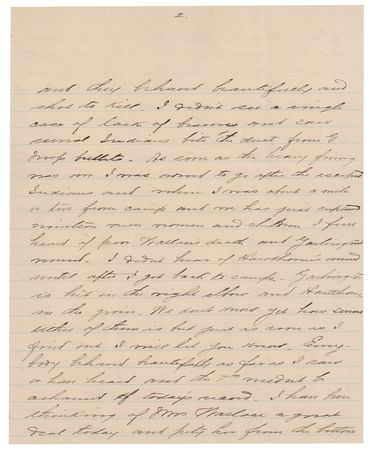 2.
and they behaved beautifully and
shot to kill. I didn't see a single
case of lack of bravery and saw
several Indians bite the dust from E
Troop bullets. As soon as the heavy firing
was over I was ordered to go after the escaped
Indians and when I was about a mile
or two from camp and we had just captured
nineteen men women and children I first
heard of poor Wallace's death and Garlington's
wound. I didn't hear of Hawthorne's wound
until after I got back to camp. Garlington
is hit in the right elbow and Hawthorne
in the groin. We don't know yet how serious
either of them is but just as soon as I
find out I will let you know. Every-
body behaved beautifully as far as I saw
or have heard and the 7th needn't be
ashamed of today's record. I have been
thinking of Mrs Wallace a great
deal today and pity her from the bottom